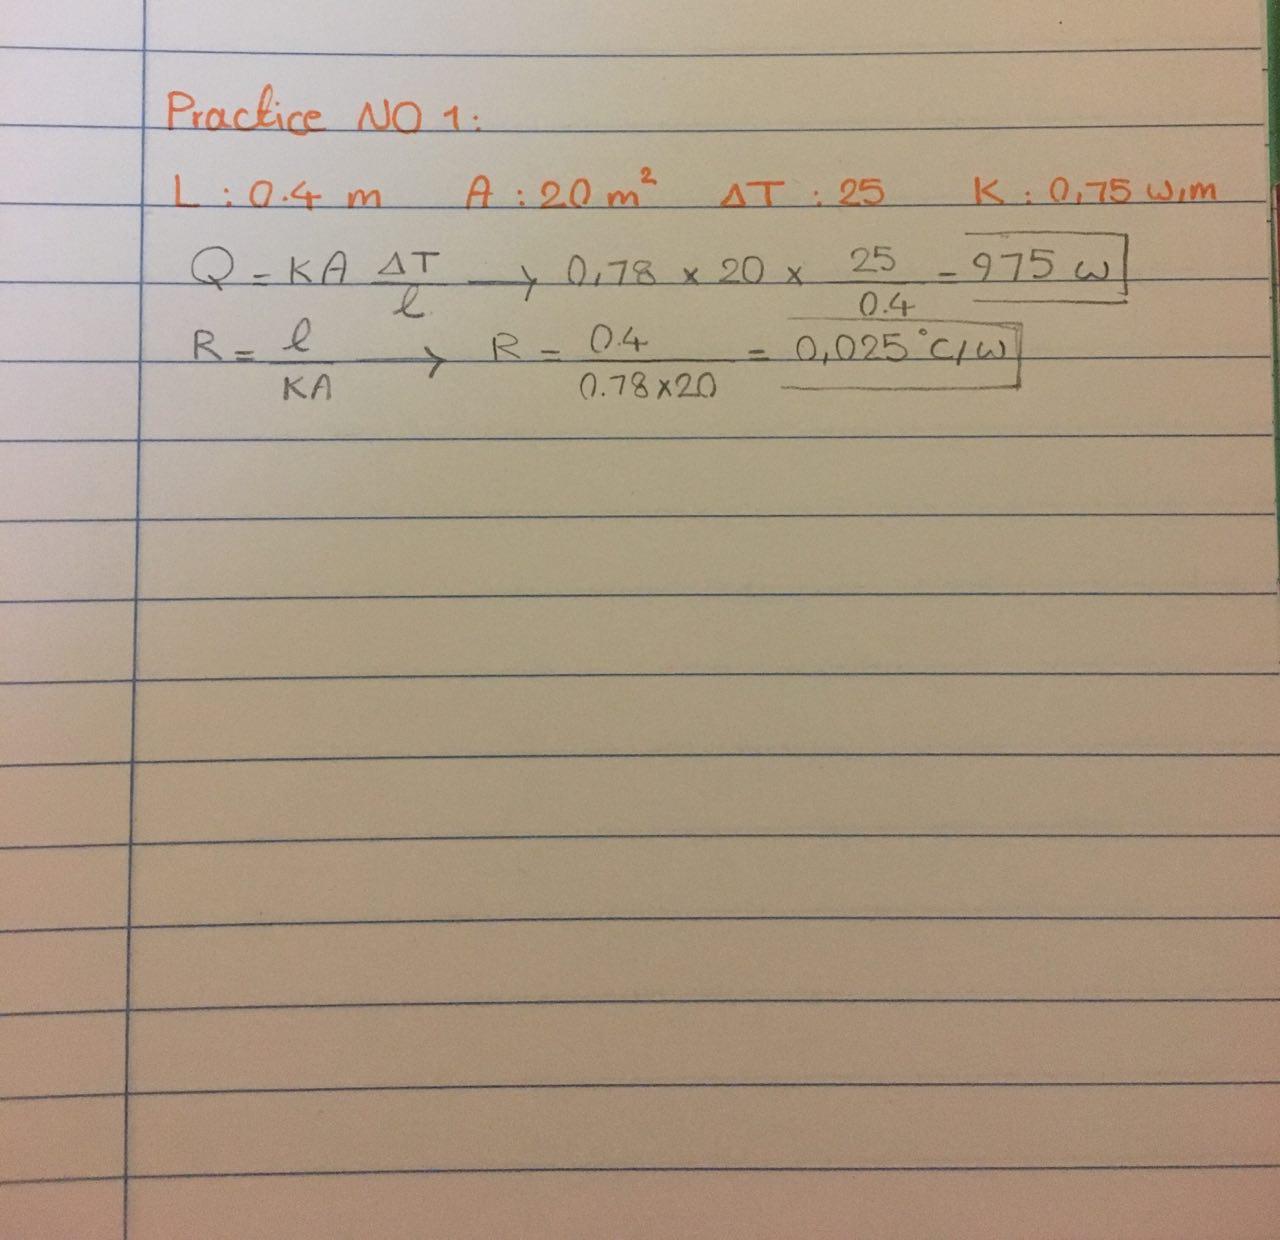 Practice NO 1:
L : 0.4 m A : 20 m² ΔT : 25 K : 0,75 w,m
Q = KA ΔT/l → 0,78 × 20 × 25/0.4 = 975 w
R = l/KA → R = 0.4/0.78×20 = 0,025 °c/w